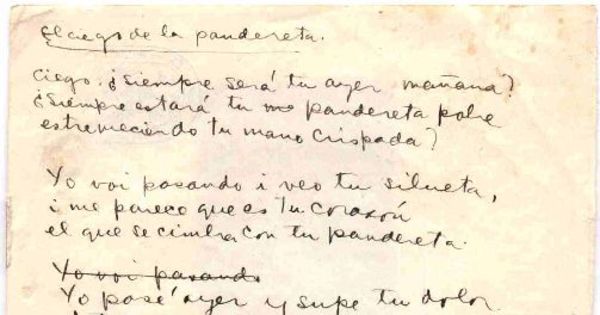 El ciego de la pandereta.
Ciego. ¿Siempre será tu ayer mañana?
¿Siempre estará tu pandereta pobre
estremeciendo tu mano crispada?
Yo voi pasando i veo tu silueta,
i me parece que es tu corazón
el que se cimbra con tu pandereta.
Yo voi pasando
Yo pasé ayer y supe tu dolor.